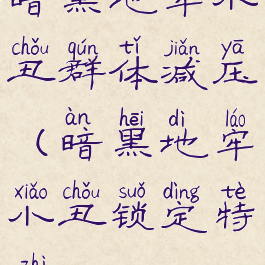 暗黑地牢小
chǒu qún tǐ jiǎn yā
丑群体减压
àn hēi dì láo
（暗黑地牢
xiǎo chǒu suǒ dìng tè
小丑锁定特
zhì